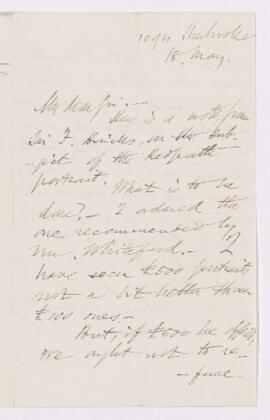 1094 Sherbrooke
18. May.
My dear Sir. —
Here is a note from
Sir F. Hincks, on the Sub-
-ject of the Redpath
portrait.
What is to be
done? — I ordered the
one recommended by
Mr. Whiteford. — I
have seen £500 portraits
not a bit better than
£100 ones —
But, if £500 be offered,
we ought not to re-
-fuse